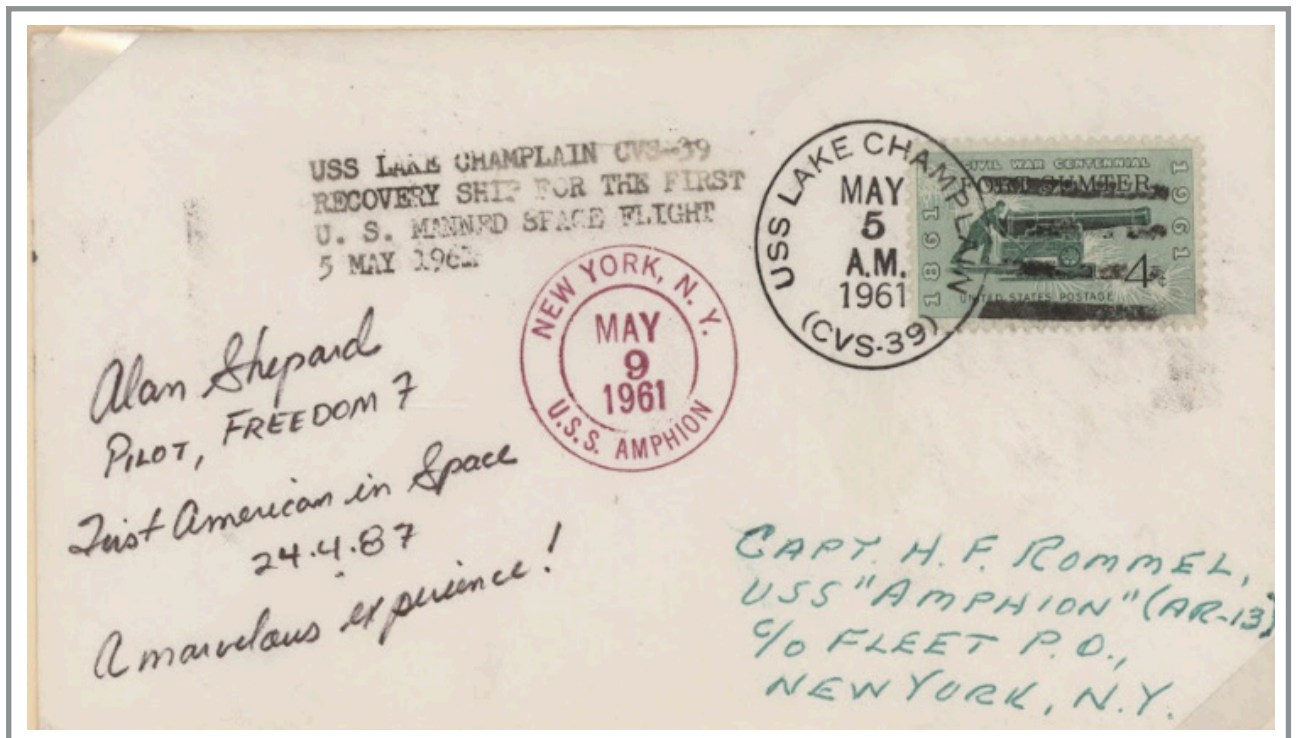 USS LAKE CHAMPLAIN CVS-39
RECOVERY SHIP FOR THE FIRST
U. S. MANNED SPACE FLIGHT
5 MAY 1961
USS LAKE CHAMPLAIN
MAY
5
A.M.
1961
(CVS-39)
CIVIL WAR CENTENNIAL
FORT SUMTER
1861
1961
4¢
UNITED STATES POSTAGE
NEW YORK, N.Y.
MAY
9
1961
U.S.S. AMPHION
Alan Shepard
PILOT, FREEDOM 7
First American in Space
24.4.87
A marvelous experience!
CAPT. H. F. ROMMEL,
USS "AMPHION" (AR-13)
c/o FLEET P.O.,
NEW YORK, N.Y.